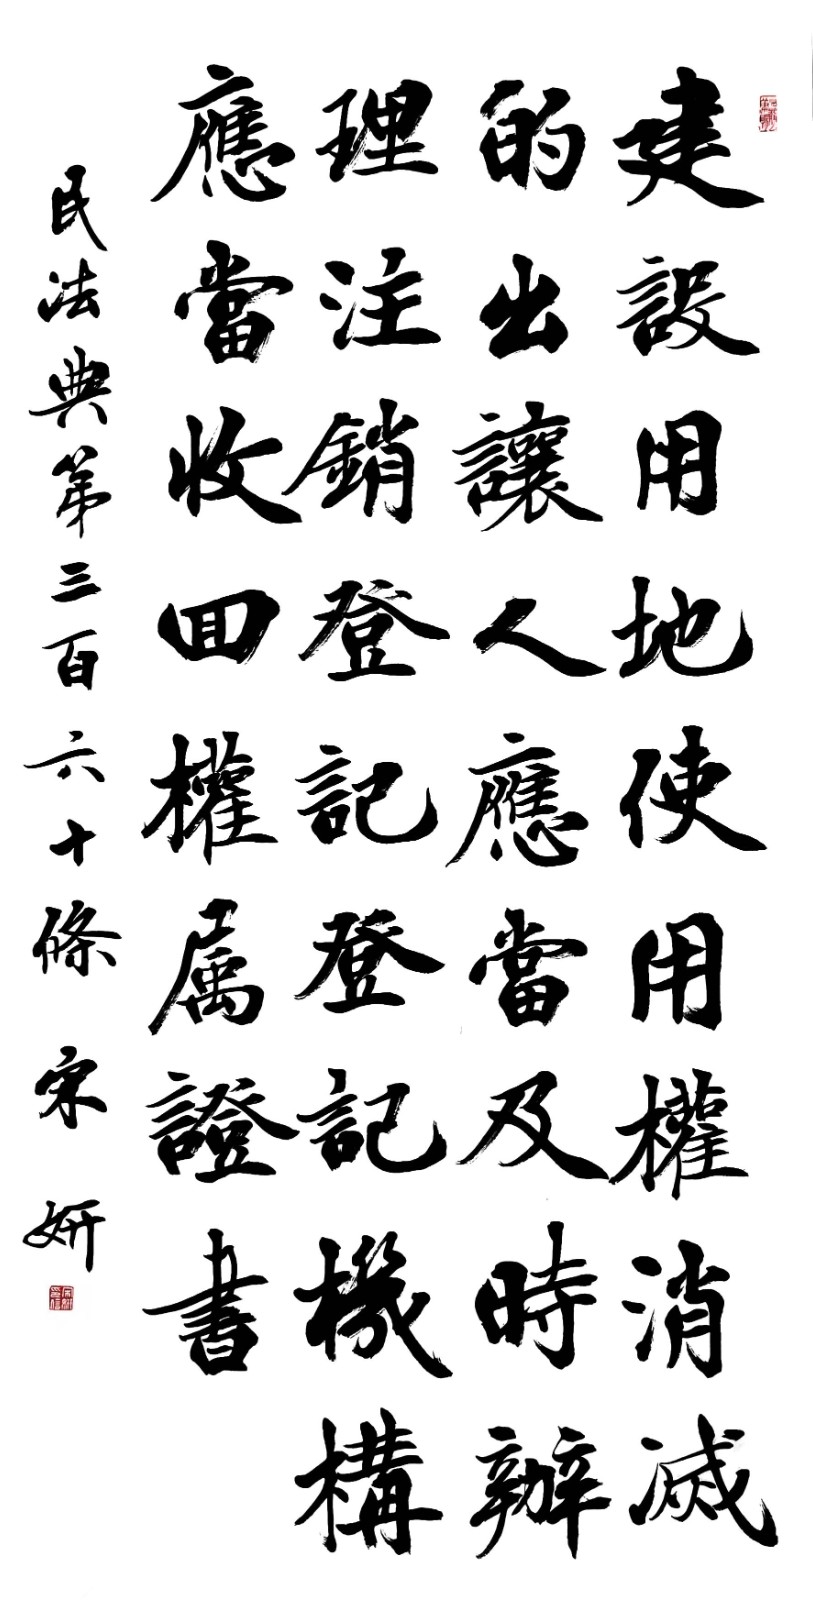 建設用地使用權消滅
的出讓人應當及時辦
理注銷登記登記機構
應當收回權属證書
民法典第三百六十條 宋妍